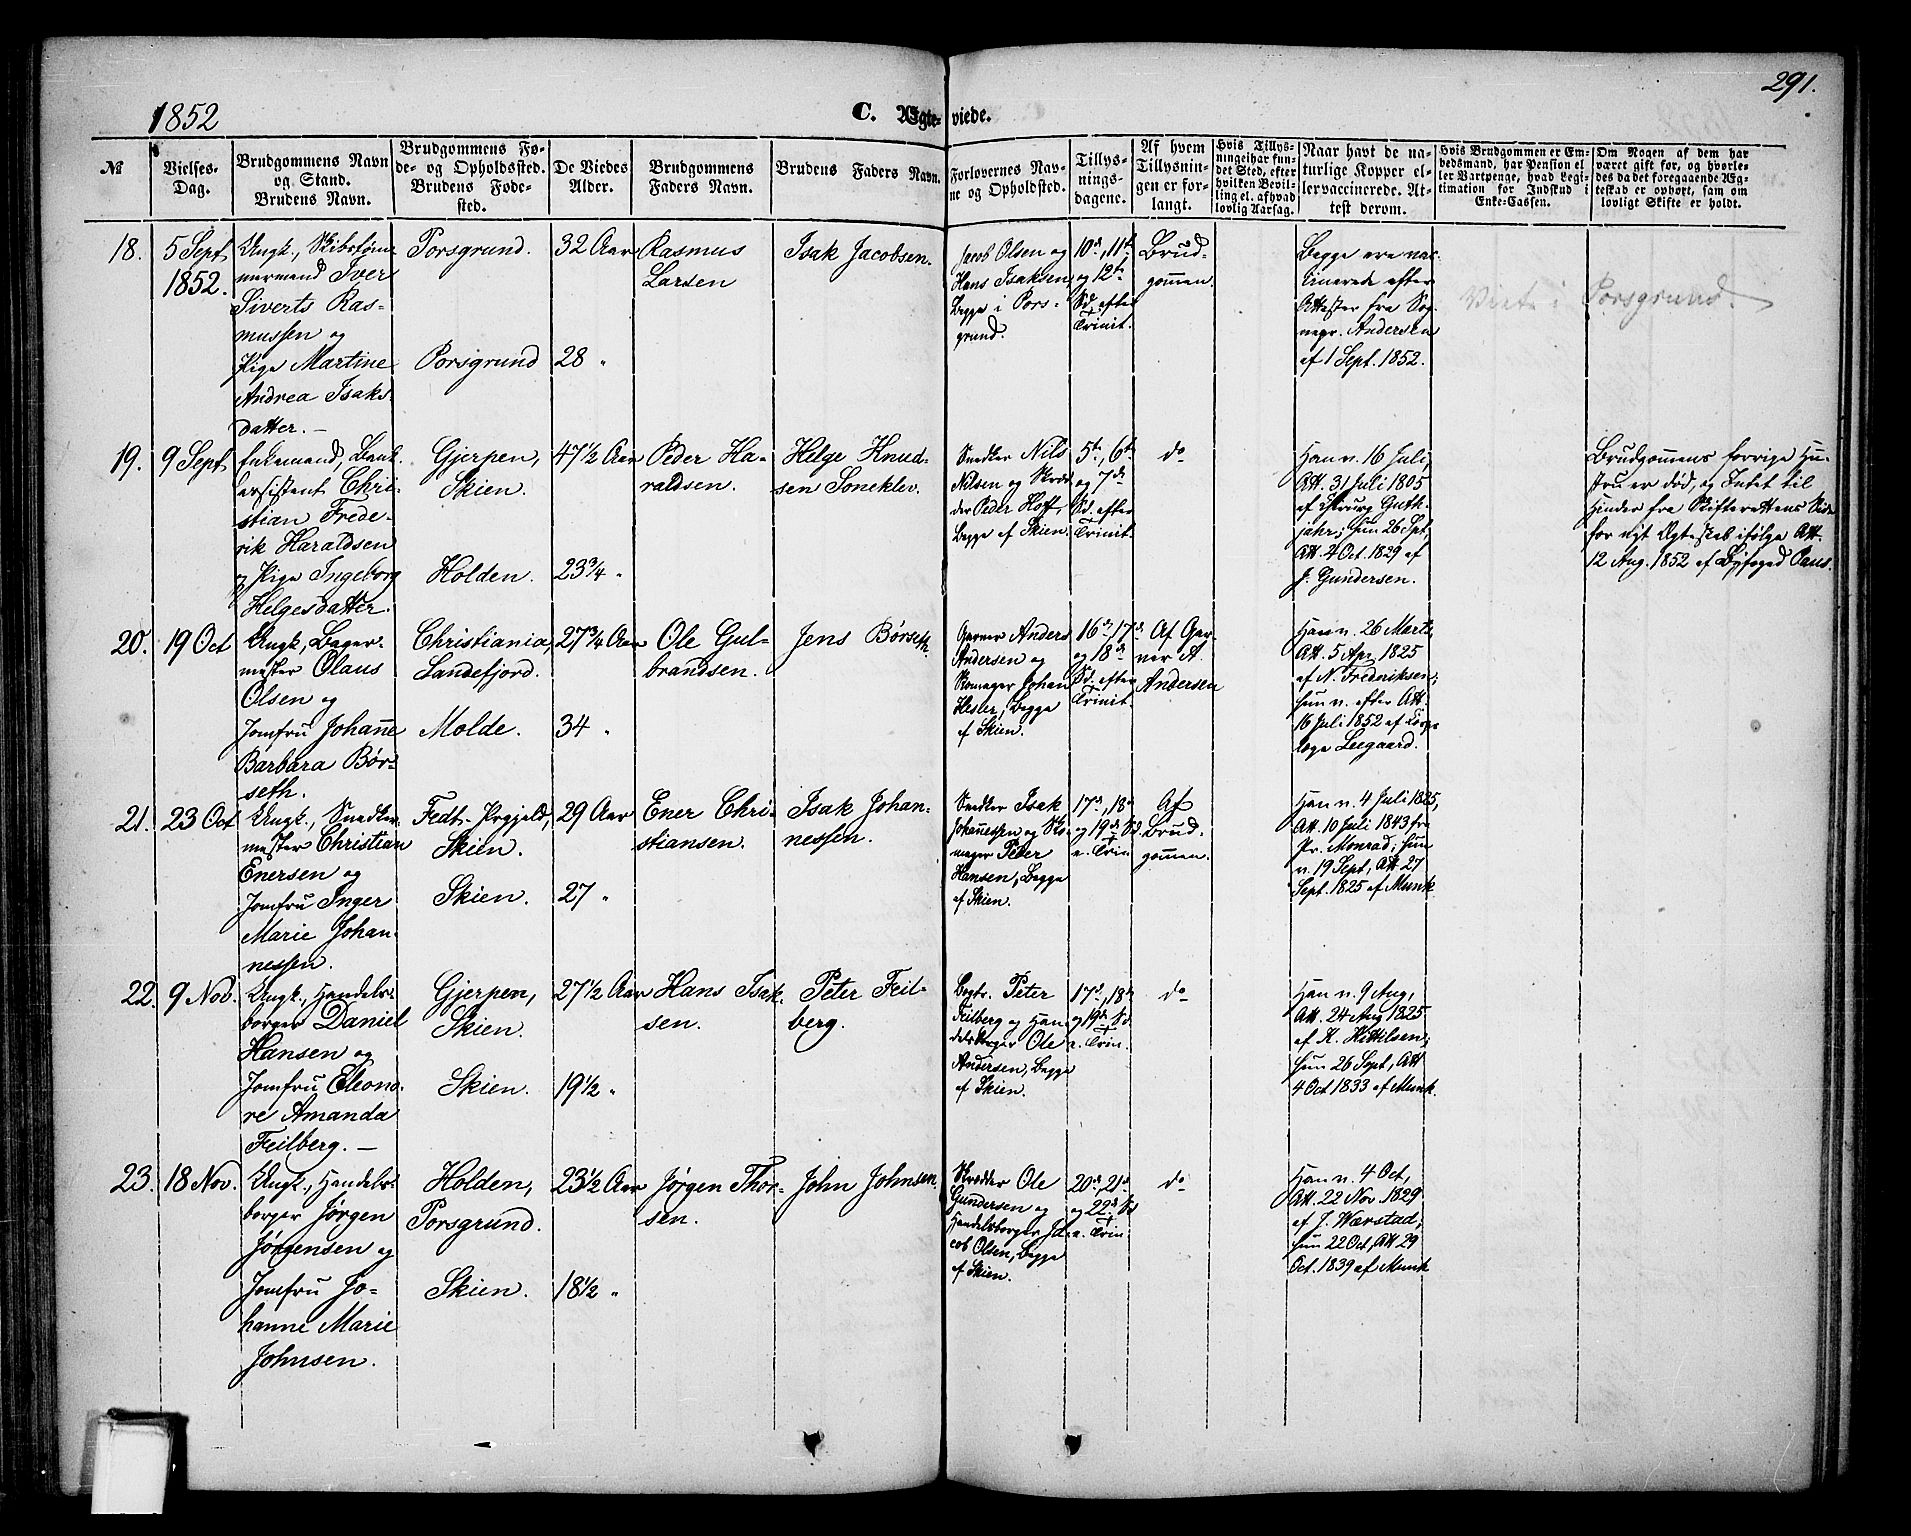 291.
1852
C. Ægte-
viede.
№
Vielses-
Dag.
Brudgommens Navn
og Stand.
Brudens Navn.
Brudgommens Fø-
de- og Opholdssted.
Brudens Føde-
sted.
De Viedes
Alder.
Brudgommens
Faders Navn.
Brudens Faders Navn.
Forlovernes Nav-
ne og Opholdsted.
Tillys-
nings-
dagene.
Af hvem
Tillysnin-
gen er for-
langt.
Hvis Tillys-
ningei har fun-
det Sted, efter
hvilken Bevil-
ling el. afhvad
lovlig Aarsag.
Naar havt de na-
turlige Kopper el-
ler vaccinerede. At-
test derom.
Hvis Brudgommen er Em-
bedsmand, har Pension el-
ler Vartpenge, hvad Legi-
timation for Indskud i
Enke-Cassen.
Om Nogen af dem har
været gift før, og hvorle-
des da det foregaaende Æg-
teskab er ophørt, sam om
lovligt Skifte er holdt.
18.
5 Sept
1852.
Ungk., Skibstøm-
mermand Iver
Siverts Ras-
mussen og
Pige Martine
Andrea Isaks-
datter. —
Porsgrund.
Porsgrund
32 Aar
28 "
Rasmus
Larsen
Isak Jacobsen.
Jacob Olsen og
Hans Isaksen,
Begge i Pors-
grund.
10de, 11te
og 12te
Sd. efter
Trinit.
Brud-
gommen.
Begge ere vac-
cinerede efter
Attester fra Sog-
nepr. Andersen
af 1 Sept. 1852.
Viets i Porsgrund.
19.
9 Sept
Enkemand, Bank-
assistent Chri-
stian Frede-
rik Haraldsen
og Pige Ingeborg
Helgesdatter.
Gjerpen,
Skien.
Holden.
47½ Aar
23¾ "
Peder Ha-
raldsen.
Helge Knud-
sen Soneklev.
Snedker Nils
Nilsen og Skræd-
der Peder Hoff,
Begge af Skien.
5te, 6te
og 7de
Sd. efter
Trinit.
do
Han v. 16 Juli,
Att. 31 Juli 1805
af Chirurg Guth-
jahr; hun 26 Spt,
Att. 2 Oct. 1829 af
J. Gundersen.
Brudgommens forrige Hu-
stru er død, og Intet til
Hinder fra Skifterettens Side
for nyt Ægteskab ifølge Att.
12 Aug. 1852 af Byfoged Paus.
20.
19 Oct
Ungk, Bager-
mester Olaus
Olsen og
Jomfru Johanne
Barbara Bør-
seth.
Christiania,
Sandefjord.
Molde.
27¾ Aar
34 "
Ole Gul-
brandsen.
Jens Børseth.
Garver Anders
Andersen og
Skomager Johan
Hesler, Begge
af Skien.
16de, 17de
og 18de
Sd. efter
Trinit.
Af Gar-
ver A.
Andersen
Han v. 26 Marts,
Att. 5 Apr. 1825
af N. Frederiksen;
hun v. efter Att.
16 Juli 1852 af Corps-
læge Leegaard.
21.
23 Oct
Ungk., Snedker-
mester Christian
Enersen og
Jomfru Inger
Marie Johan-
nessen.
Fedt- Prgjeld,
Skien.
Skien.
29 Aar
27 "
Ener Chri-
stiansen.
Isak Johan-
nessen.
Snedker Isak
Johannessen og Sko-
mager Peter
Hansen, Begge
af Skien.
17de, 18de
og 19de Sd.
e. Trin.
Af
Brud-
gommen.
Han v. 4 Juli 1825,
Att. 10 Juli 1843 fra
Pr. Monrad; hun
v. 19 Sept, Att 27
Sept. 1825 af Munk.
22.
9 Nov.
Ungk., Handels-
borger Daniel
Hansen og
Jomfru Eleono-
re Amanda
Feilberg. —
Gjerpen,
Skien.
Skien.
27½ Aar
19½ "
Hans Isak-
sen.
Peter Feil-
berg.
Bogtr. Peter
Feilberg og Han
delsborger Ole
Andersen, Begge
af Skien.
17de, 18de
og 19de Sd
e. Trin.
do
Han v. 9 Aug,
Att. 24 Aug 1825
af K. Kittilsen;
hun 26 Sept, Att
4 Oct 1833 af Munk.
23.
18 Nov.
Ungk., Handels-
borger Jørgen
Jørgensen og
Jomfru Jo-
hanne Marie
Johnsen.
Holden,
Porsgrund.
Skien.
23½ Aar
18½ "
Jørgen Thor-
sen.
John Johnsen.
Skrædder Ole
Gundersen og
Handelsborger Ja-
cob Olsen, Begge
af Skien.
20de, 21de
og 22de Sd
e. Trin
do
Han v. 4 Oct,
Att. 22 Nov. 1829
af J. Wærstad;
hun 22 Oct, Att 29
Oct. 1839 af Munk